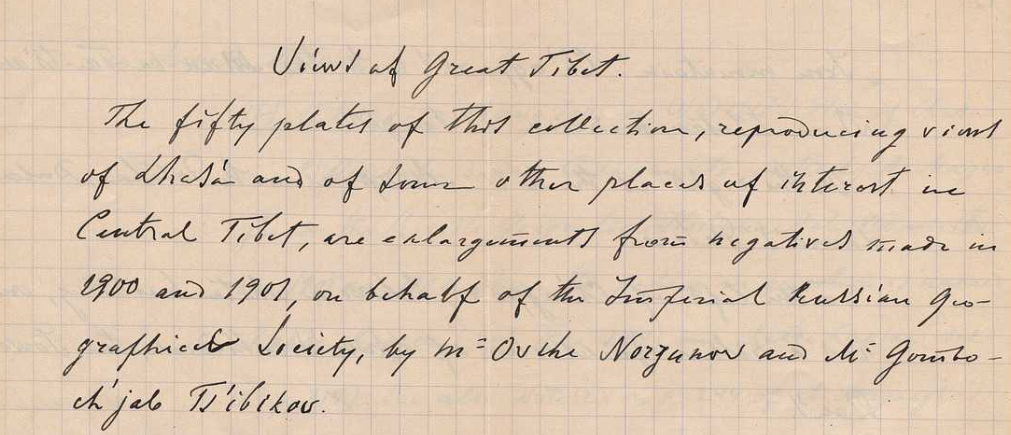 Views of Great Tibet.
The fifty plates of this collection, reproducing views
of Lhasá and of some other places of interest in
Central Tibet, are enlargements from negatives made in
1900 and 1901, on behalf of the Imperial Russian Geo-
graphical Society, by Mr Ovche Norzunov and Mr Gombo-
ch'jab Ts'ibikov.